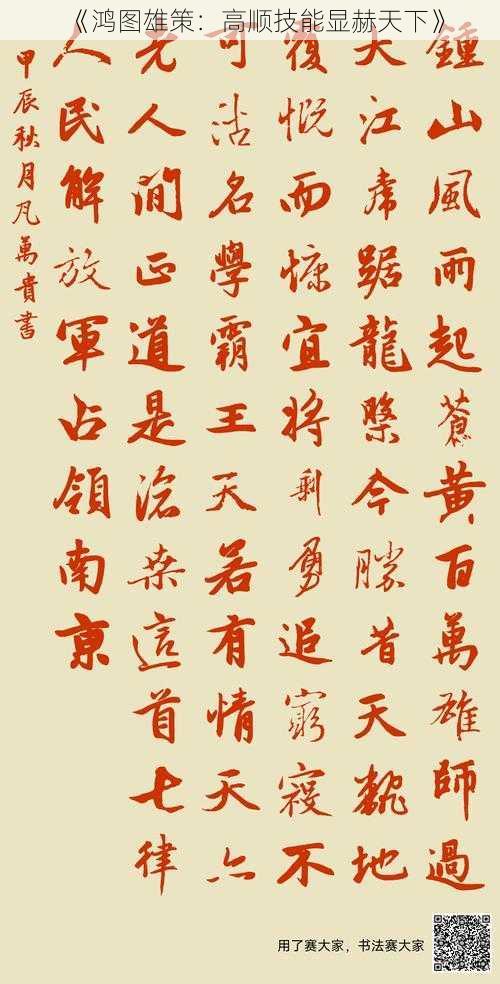 《鸿图雄策：高顺技能显赫天下》
鍾山風雨起蒼黄百萬雄師過
大江虎踞龍槃今勝昔天翻地
復慨而慷宜將剩勇追窮寇不
可沽名學霸王天若有情天亦
老人間正道是滄桑這首七律
人民解放軍占領南京
甲辰秋月凡萬貴書
用了赛大家，书法赛大家